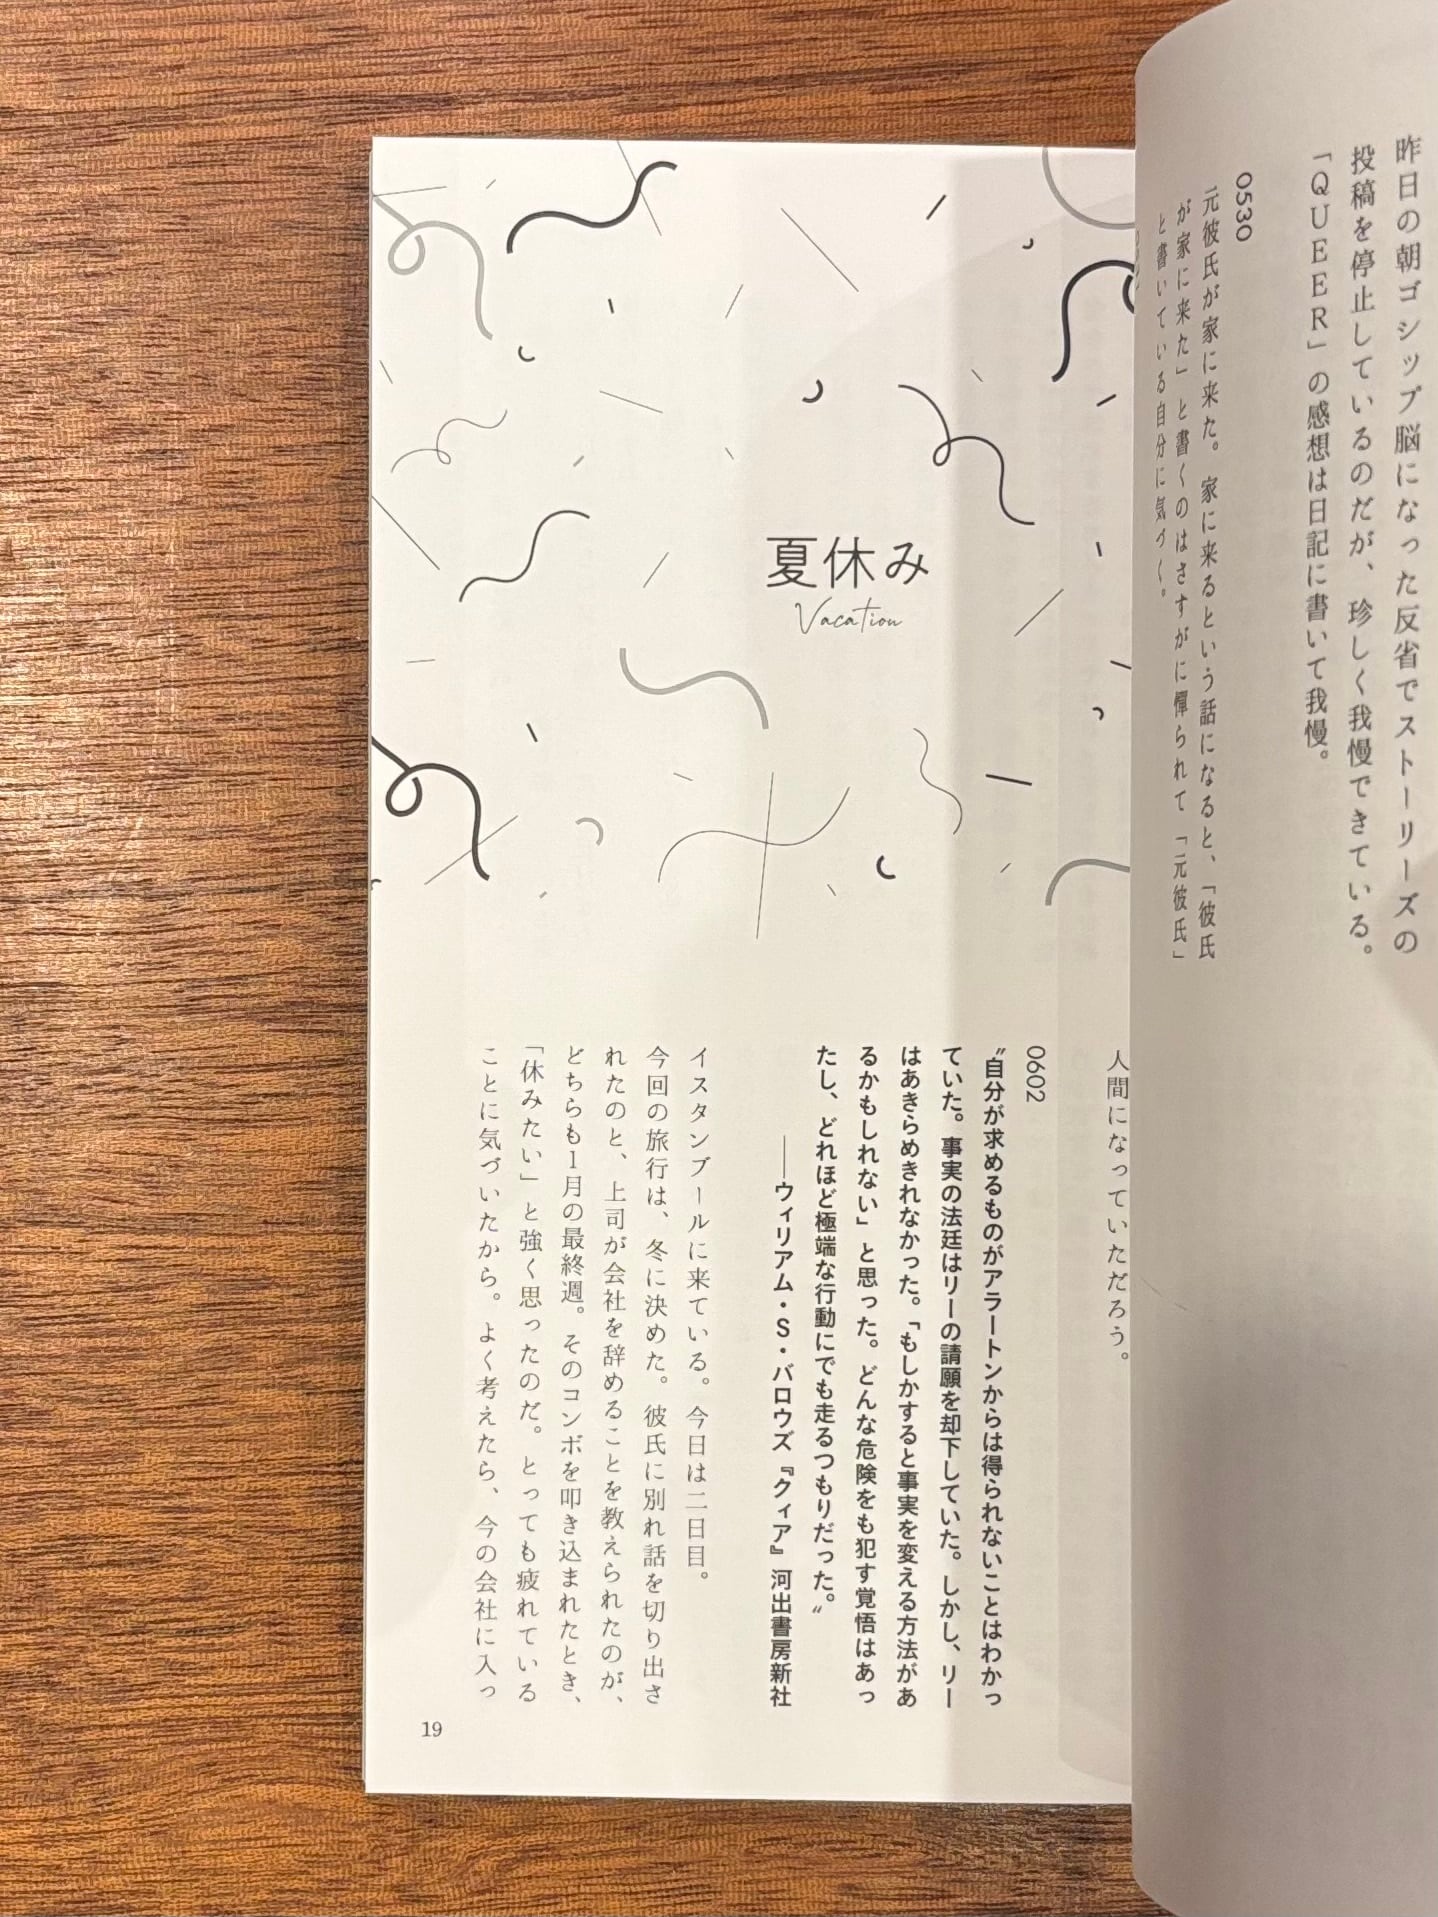 昨日の朝ゴシップ脳になった反省でストーリーズの
投稿を停止しているのだが、珍しく我慢できている。
「QUEER」の感想は日記に書いて我慢。
0530
元彼氏が家に来た。家に来るという話になると、「彼氏
が家に来た」と書くのはさすがに憚られて「元彼氏」
と書いている自分に気づく。
人間になっていただろう。
夏休み
Vacation
0602
〝自分が求めるものがアラートンからは得られないことはわかっ
ていた。事実の法廷はリーの請願を却下していた。しかし、リー
はあきらめきれなかった。「もしかすると事実を変える方法があ
るかもしれない」と思った。どんな危険をも犯す覚悟はあっ
たし、どれほど極端な行動にでも走るつもりだった。〟
――ウィリアム・S・バロウズ『クィア』河出書房新社
イスタンブールに来ている。今日は二日目。
今回の旅行は、冬に決めた。彼氏に別れ話を切り出さ
れたのと、上司が会社を辞めることを教えられたのが、
どちらも1月の最終週。そのコンボを叩き込まれたとき、
「休みたい」と強く思ったのだ。とっても疲れている
ことに気づいたから。よく考えたら、今の会社に入っ
19